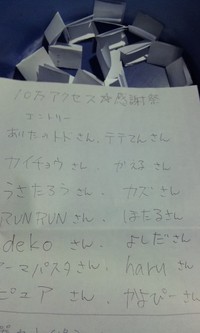 10万アクセス☆感謝祭
エントリー
あしたのトトさん、テテてんさん
カイチョウさん、かえるさん
うさたろうさん カズさん
RUNRUNさん、ほたるさん
dekoさん、よしださん
ーマパスタさん haruさん
ピュアさん、かよぴーさん